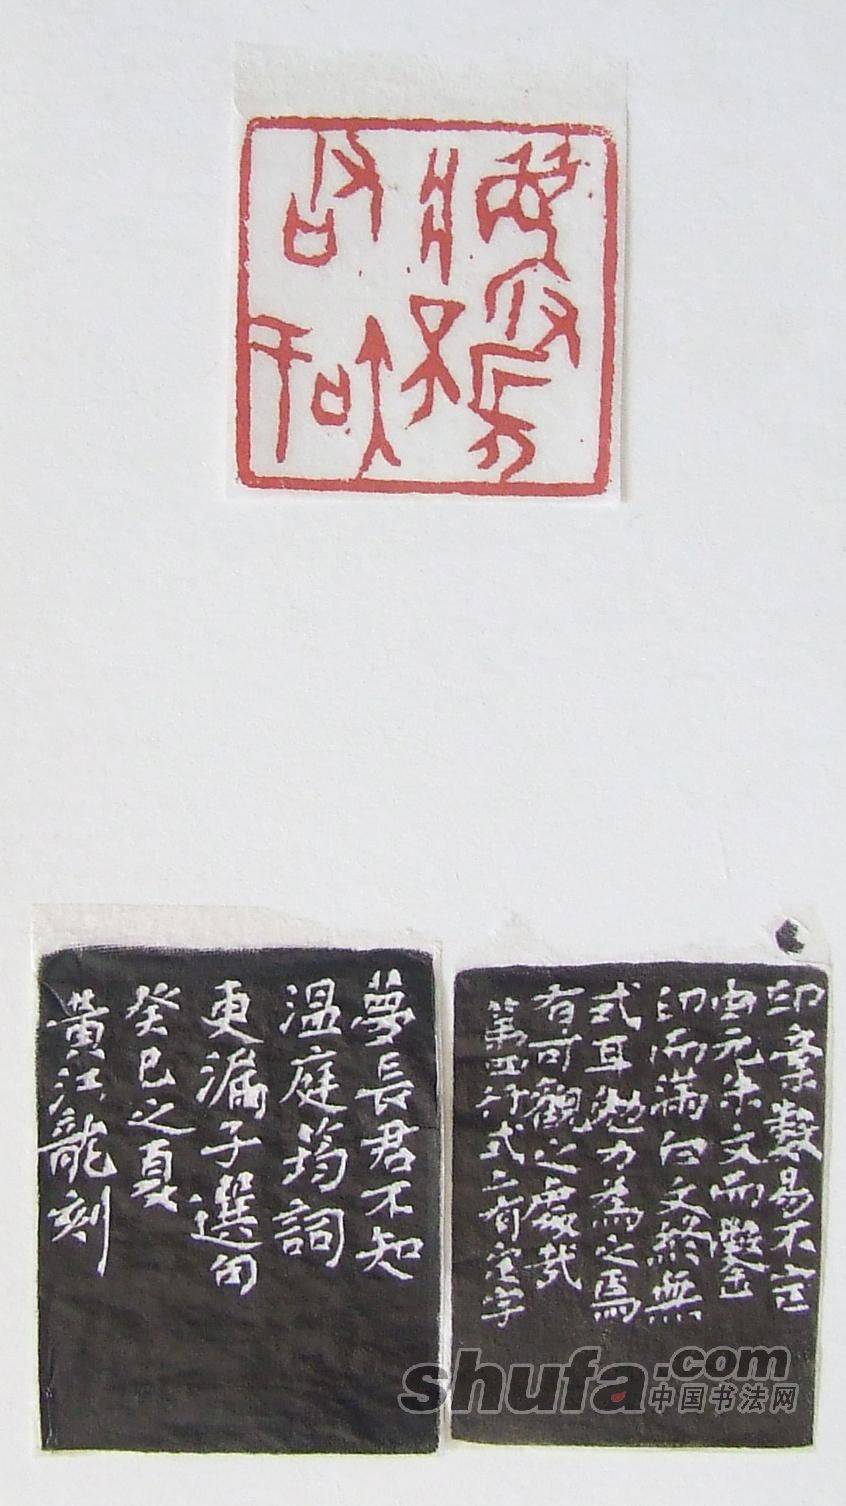 印稾數易不定
由元朱文而鑿
印而滿白文終無
式耳勉力為之焉
有可觀之處哉
第四行式上有定字
夢長君不知
温庭筠詞
更漏子選句
癸巳之夏
黃江龍刻
shufa.com
中国书法网